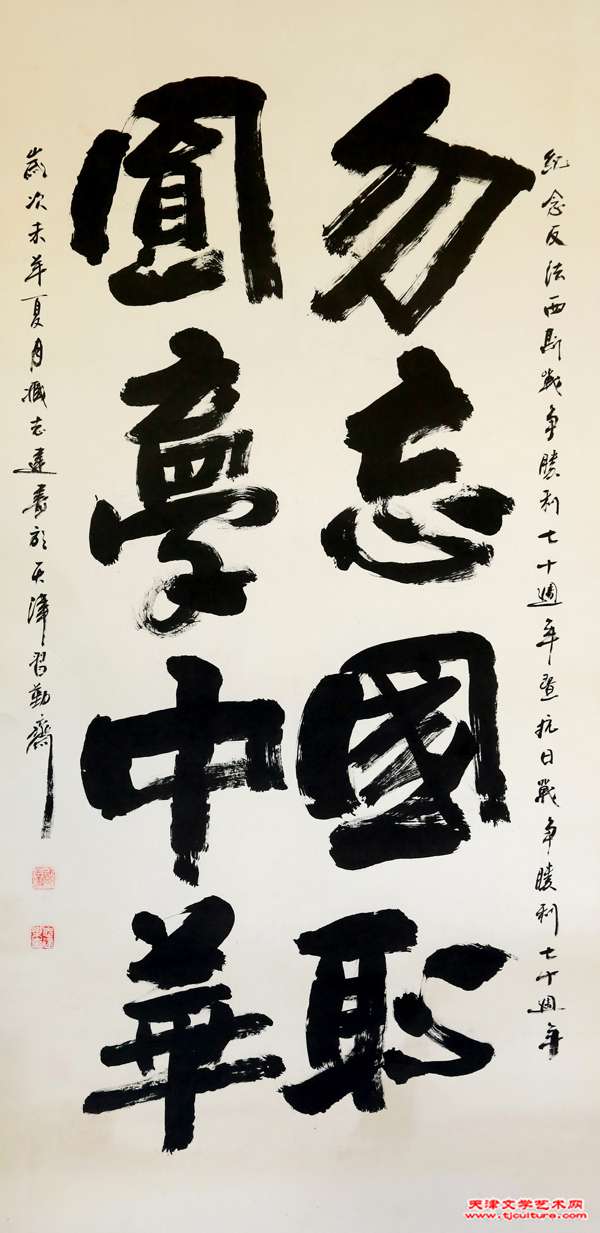 纪念反法西斯戰争勝利七十週年暨抗日戰争勝利七十週年
勿忘國耻
圓夢中華
歲次未年夏月臧志建書於天津習勤齋
天津文学艺术网
www.tjculture.com